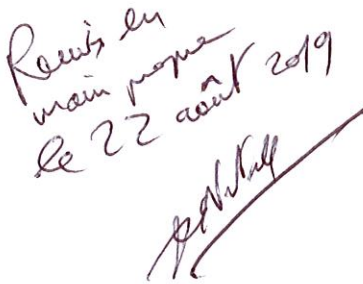 Remis en
main propre
le 22 août 2019